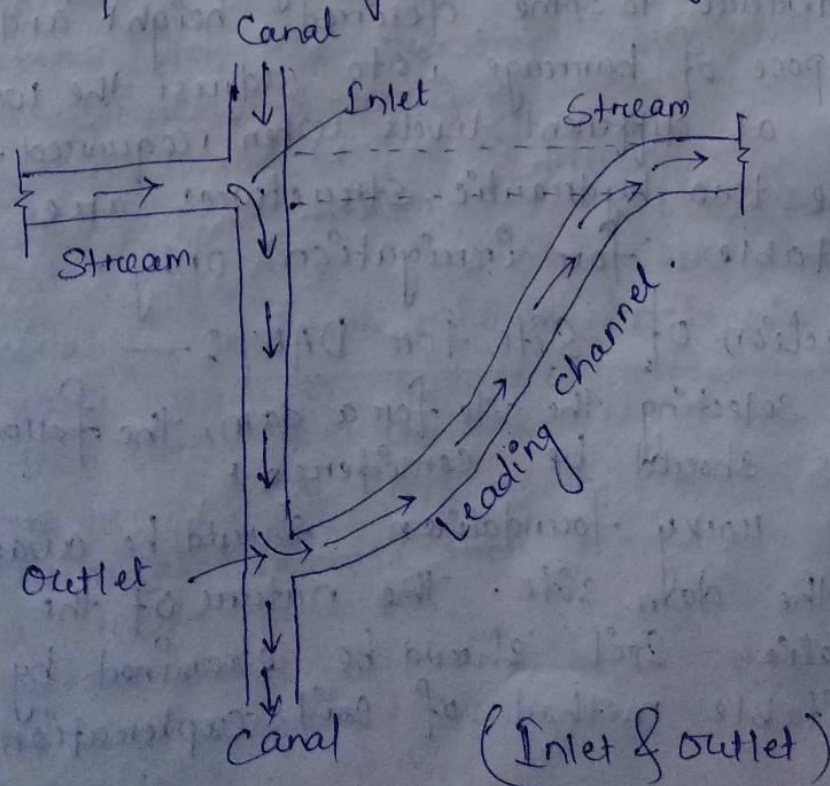 Canal
Inlet
Stream
Stream
Leading channel.
Outlet
Canal
(Inlet & outlet)